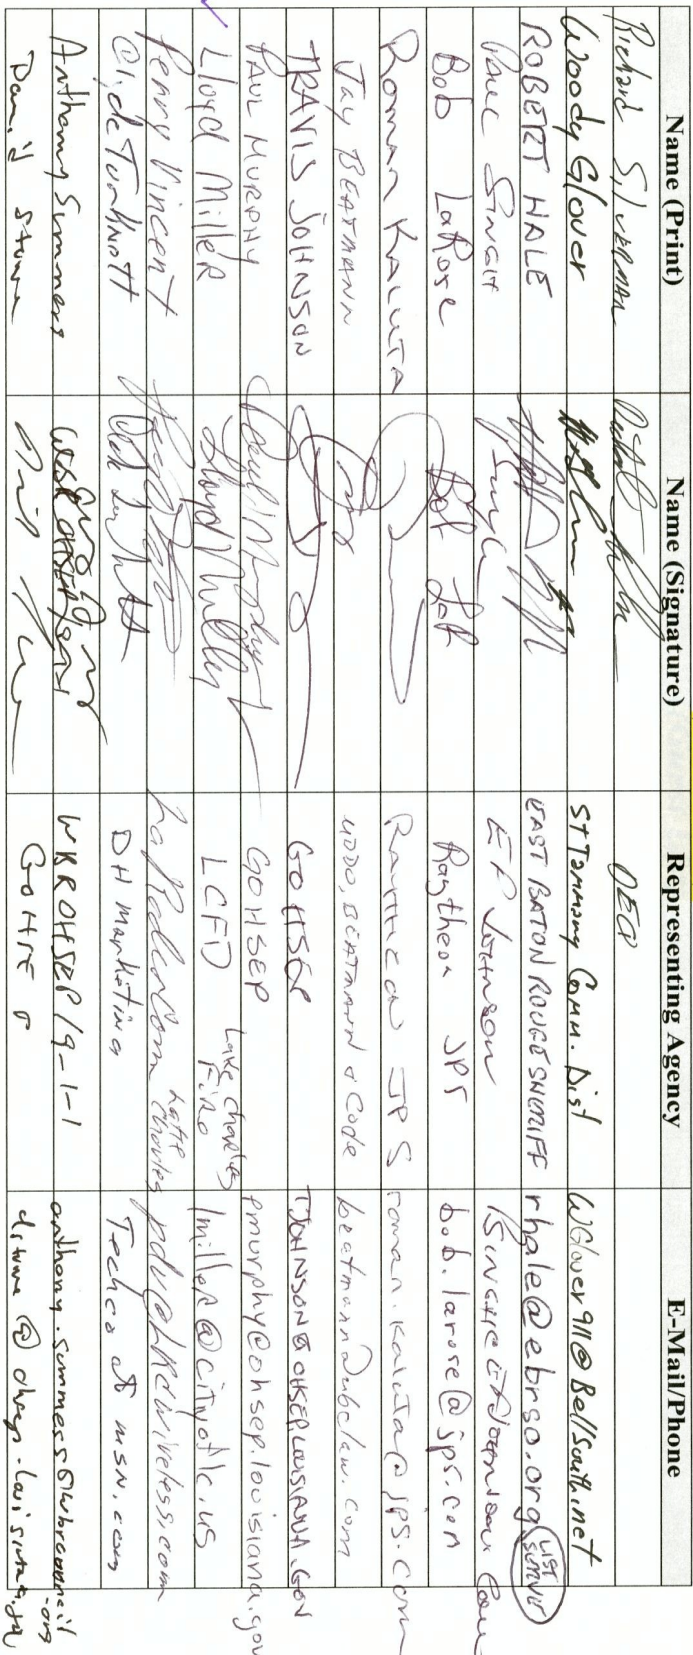 Name (Print) Name (Signature) Representing Agency E-Mail/Phone
Richard Silverman
Woody Glover St Tammany Comm. Dist WGlover911@BellSouth.net
ROBERT HALE EAST BATON ROUGE SHERIFF rhale@ebrso.org LIST SERVE
PAUL SINGH EF JOHNSON
Bob LaRose Raytheon JPS bob.larose@jps.com
ROMAN KALUTA RAYTHEON JPS roman.kaluta@jps.com
Jay BEATMANN UDDO, BEATMANN & Code beatmann@ubclaw.com
TRAVIS JOHNSON GOHSEP TJOHNSON@OHSEP.LOUISIANA.GOV
PAUL MURPHY Paul Murphy GOHSEP pmurphy@ohsep.louisiana.gov
Lloyd Miller Lloyd Miller LCFD Lake Charles Fire lmiller@cityoflc.us
Penny Vincent
DH Marketing Techco at msn.com
Anthony Summers WBROHSEP/9-1-1 anthony.summers@wbrcouncil.org